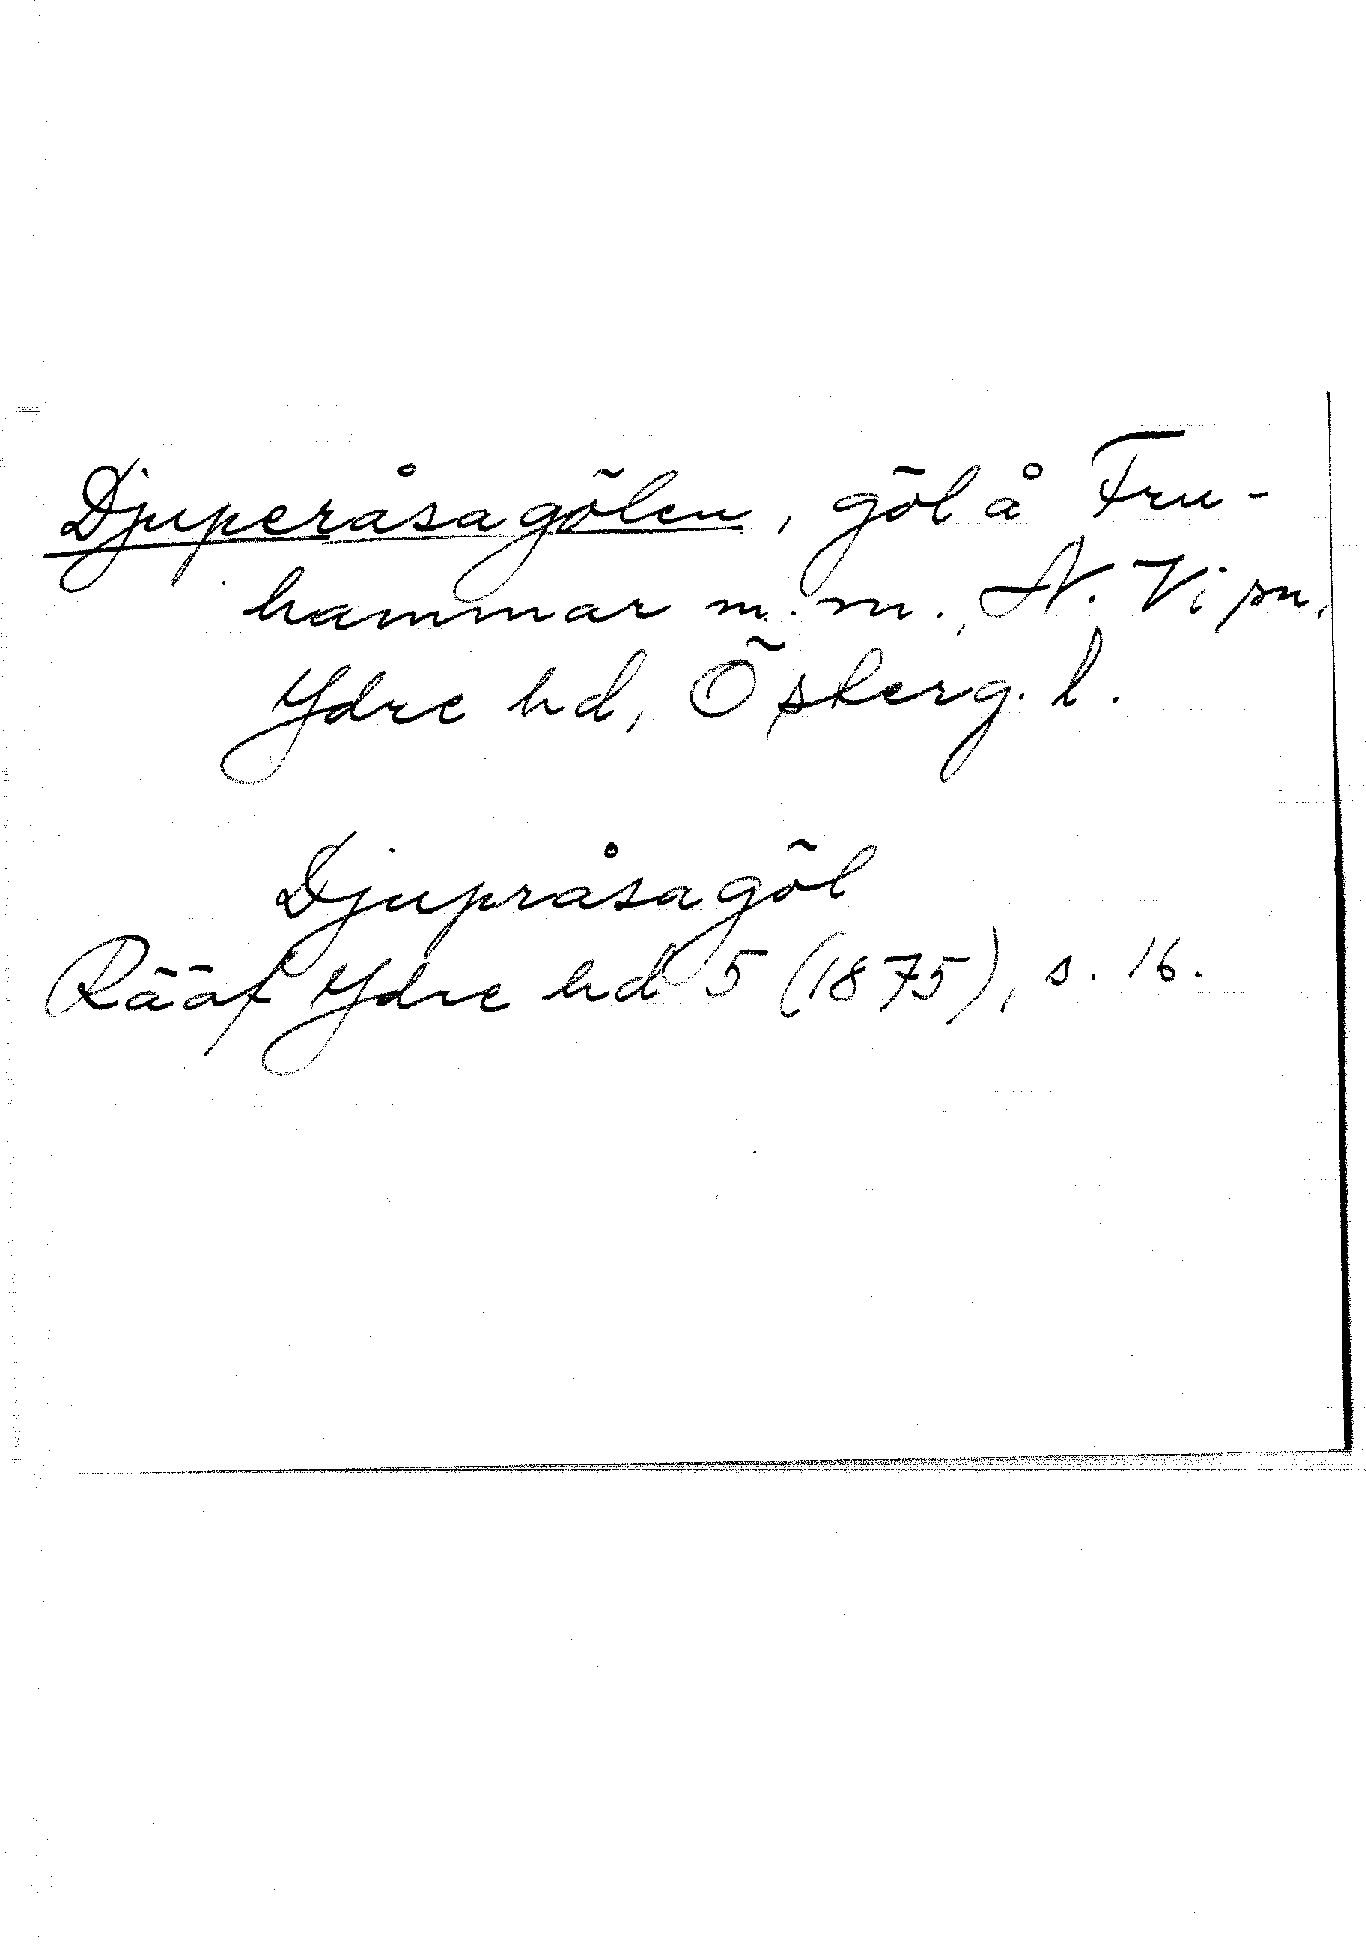 Djuperåsagölen, göl å Fru-
hammar m.m., N. Vi sn,
Ydre hd, Österg. l.
Djupråsagöl
Rääf Ydre hd 5 (1875), s. 16.